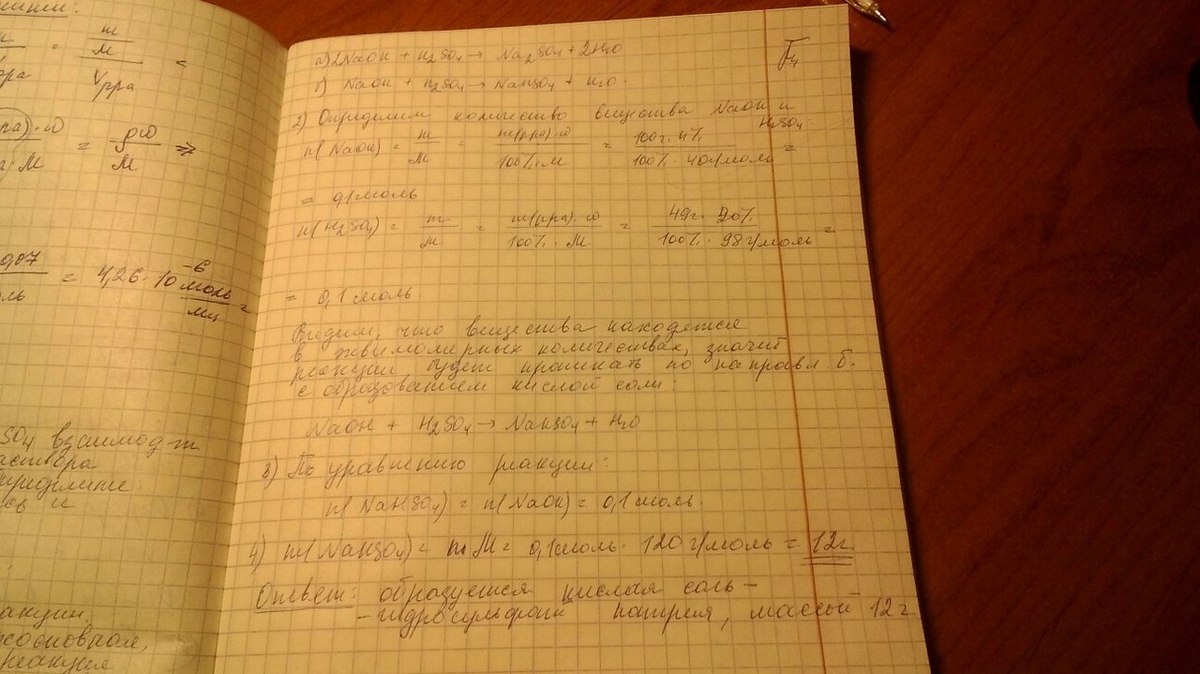 n/M = m/M / Vрра =
ρω/M ⇒
0,07 = 4,26 · 10⁻⁶ моль/мл =
SO₄ взаимод-т
аствора
пределите
сь и
акции.
хосновная,
реакция
а) 2NaOH + H₂SO₄ → Na₂SO₄ + 2H₂O
б) NaOH + H₂SO₄ → NaHSO₄ + H₂O.
2) Определим количество вещества NaOH и H₂SO₄:
n(NaOH) = m/M = m(рра)·ω/100%·M = 100г·4%/100%·40г/моль =
= 0,1 моль
n(H₂SO₄) = m/M = m(рра)·ω/100%·M = 49г·20%/100%·98г/моль =
= 0,1 моль.
Видим, что вещества находятся
в эквимолярных количествах, значит
реакция будет протекать по направл б.
с образованием кислой соли:
NaOH + H₂SO₄ → NaHSO₄ + H₂O
3) По уравнению реакции:
n(NaHSO₄) = n(NaOH) = 0,1 моль.
4) m(NaHSO₄) = n·M = 0,1 моль · 120 г/моль = 12г.
Ответ: образуется кислая соль –
– гидросульфат натрия, массой 12 г